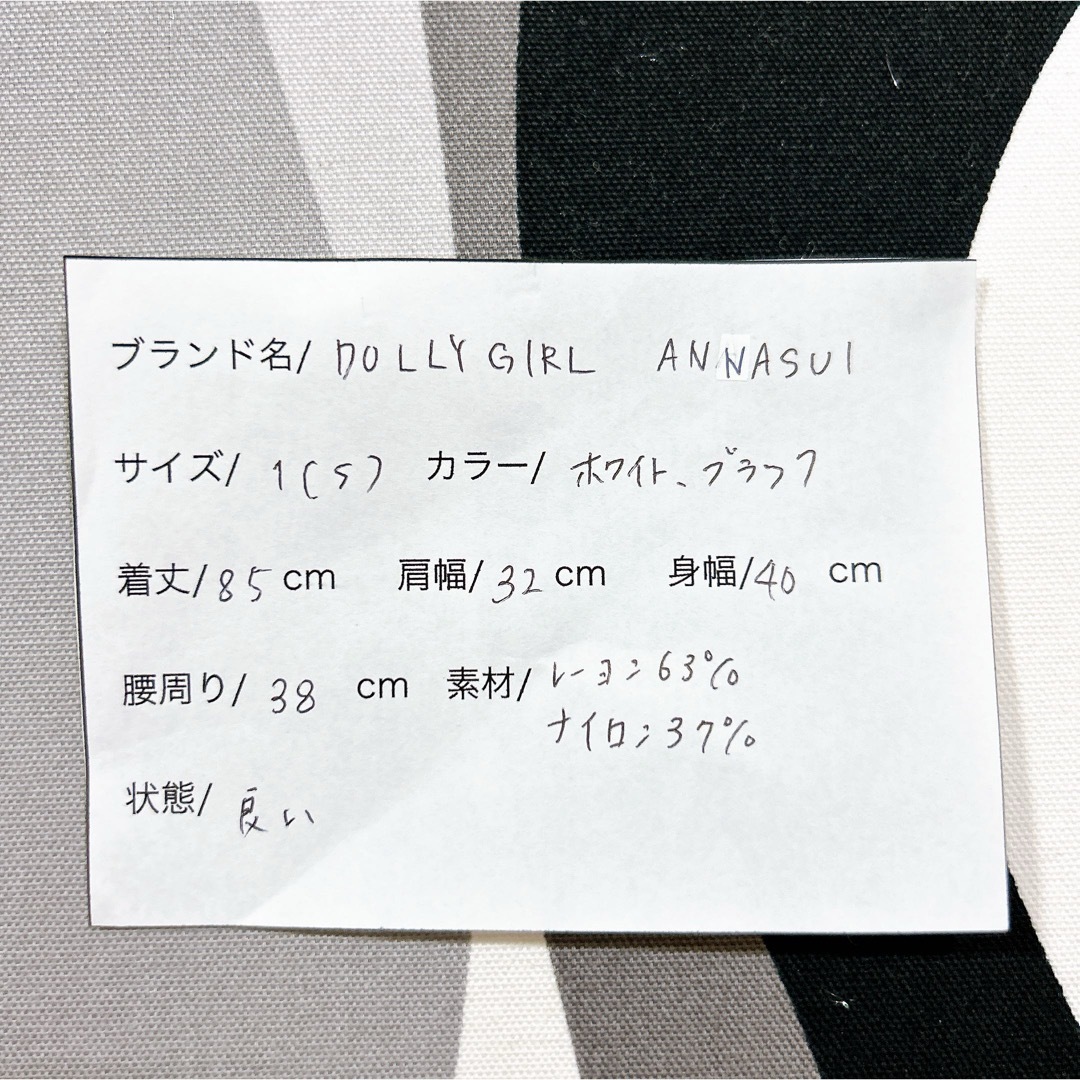 ブランド名/ DOLLY GIRL ANNASUI
サイズ/ 1(S) カラー/ ホワイト、ブラック
着丈/85 cm 肩幅/32 cm 身幅/40 cm
腰周り/ 38 cm 素材/ レーヨン63%
ナイロン37%
状態/ 良い